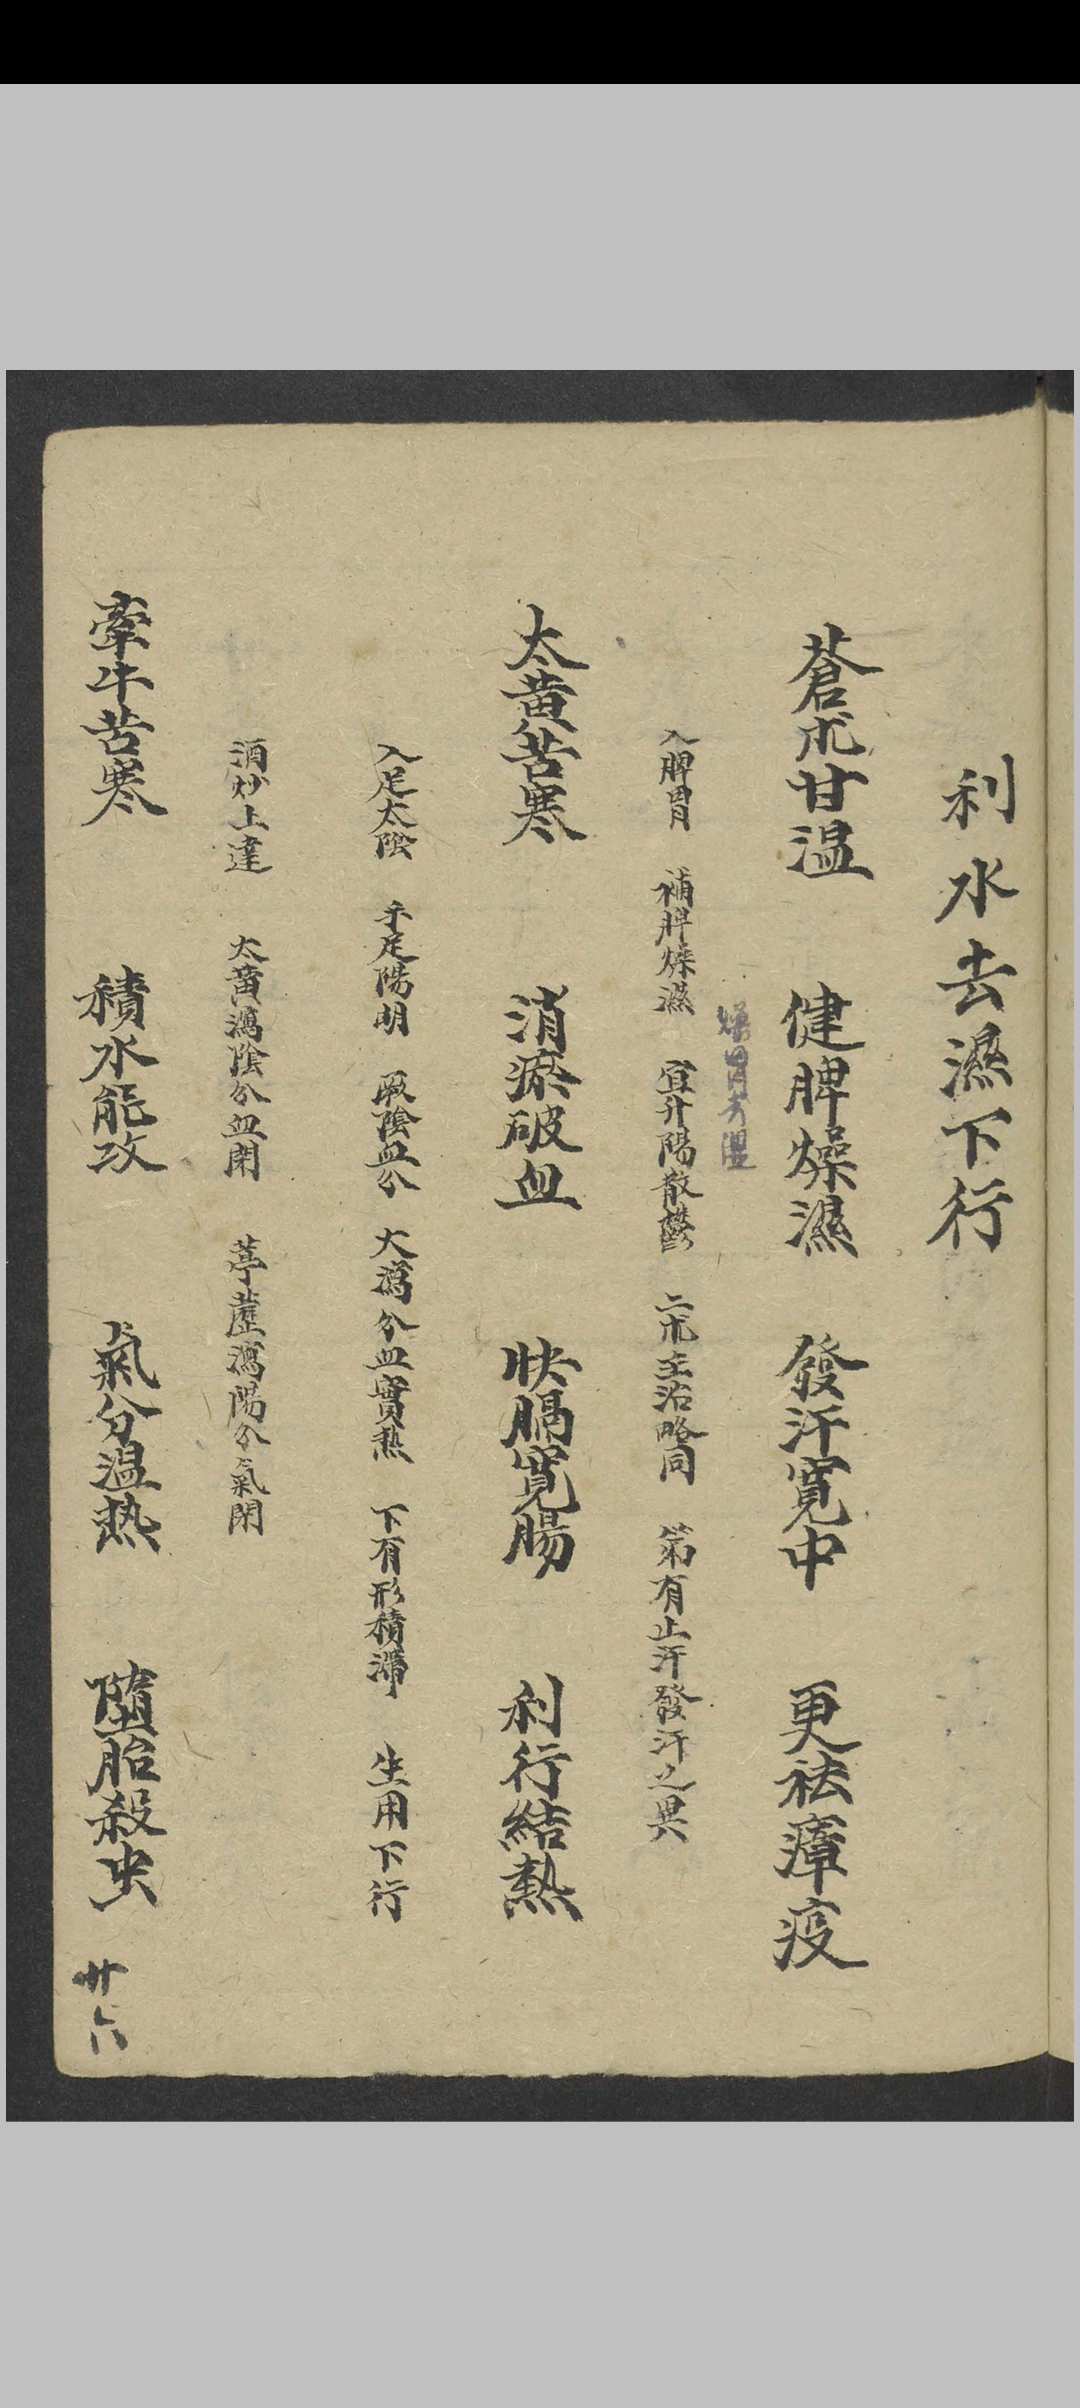 利水去濕下行
蒼朮甘温　健脾燥濕　發汗寛中　更祛瘴疫
燥胃
入脾胃　補脾燥濕　宜升陽散鬱　二朮主治略同　第有止汗發汗之異
太黄苦寒　消瘀破血　快膈寛腸　利行結熱
入足太陰　手足陽明　厥陰血分　大瀉分血實熱　下有形積滯　生用下行
酒炒上達　太黄瀉陰分血閉　葶藶瀉陽分氣閉
牽牛苦寒　積水能攻　氣分温熱　墮胎殺虫
廿六